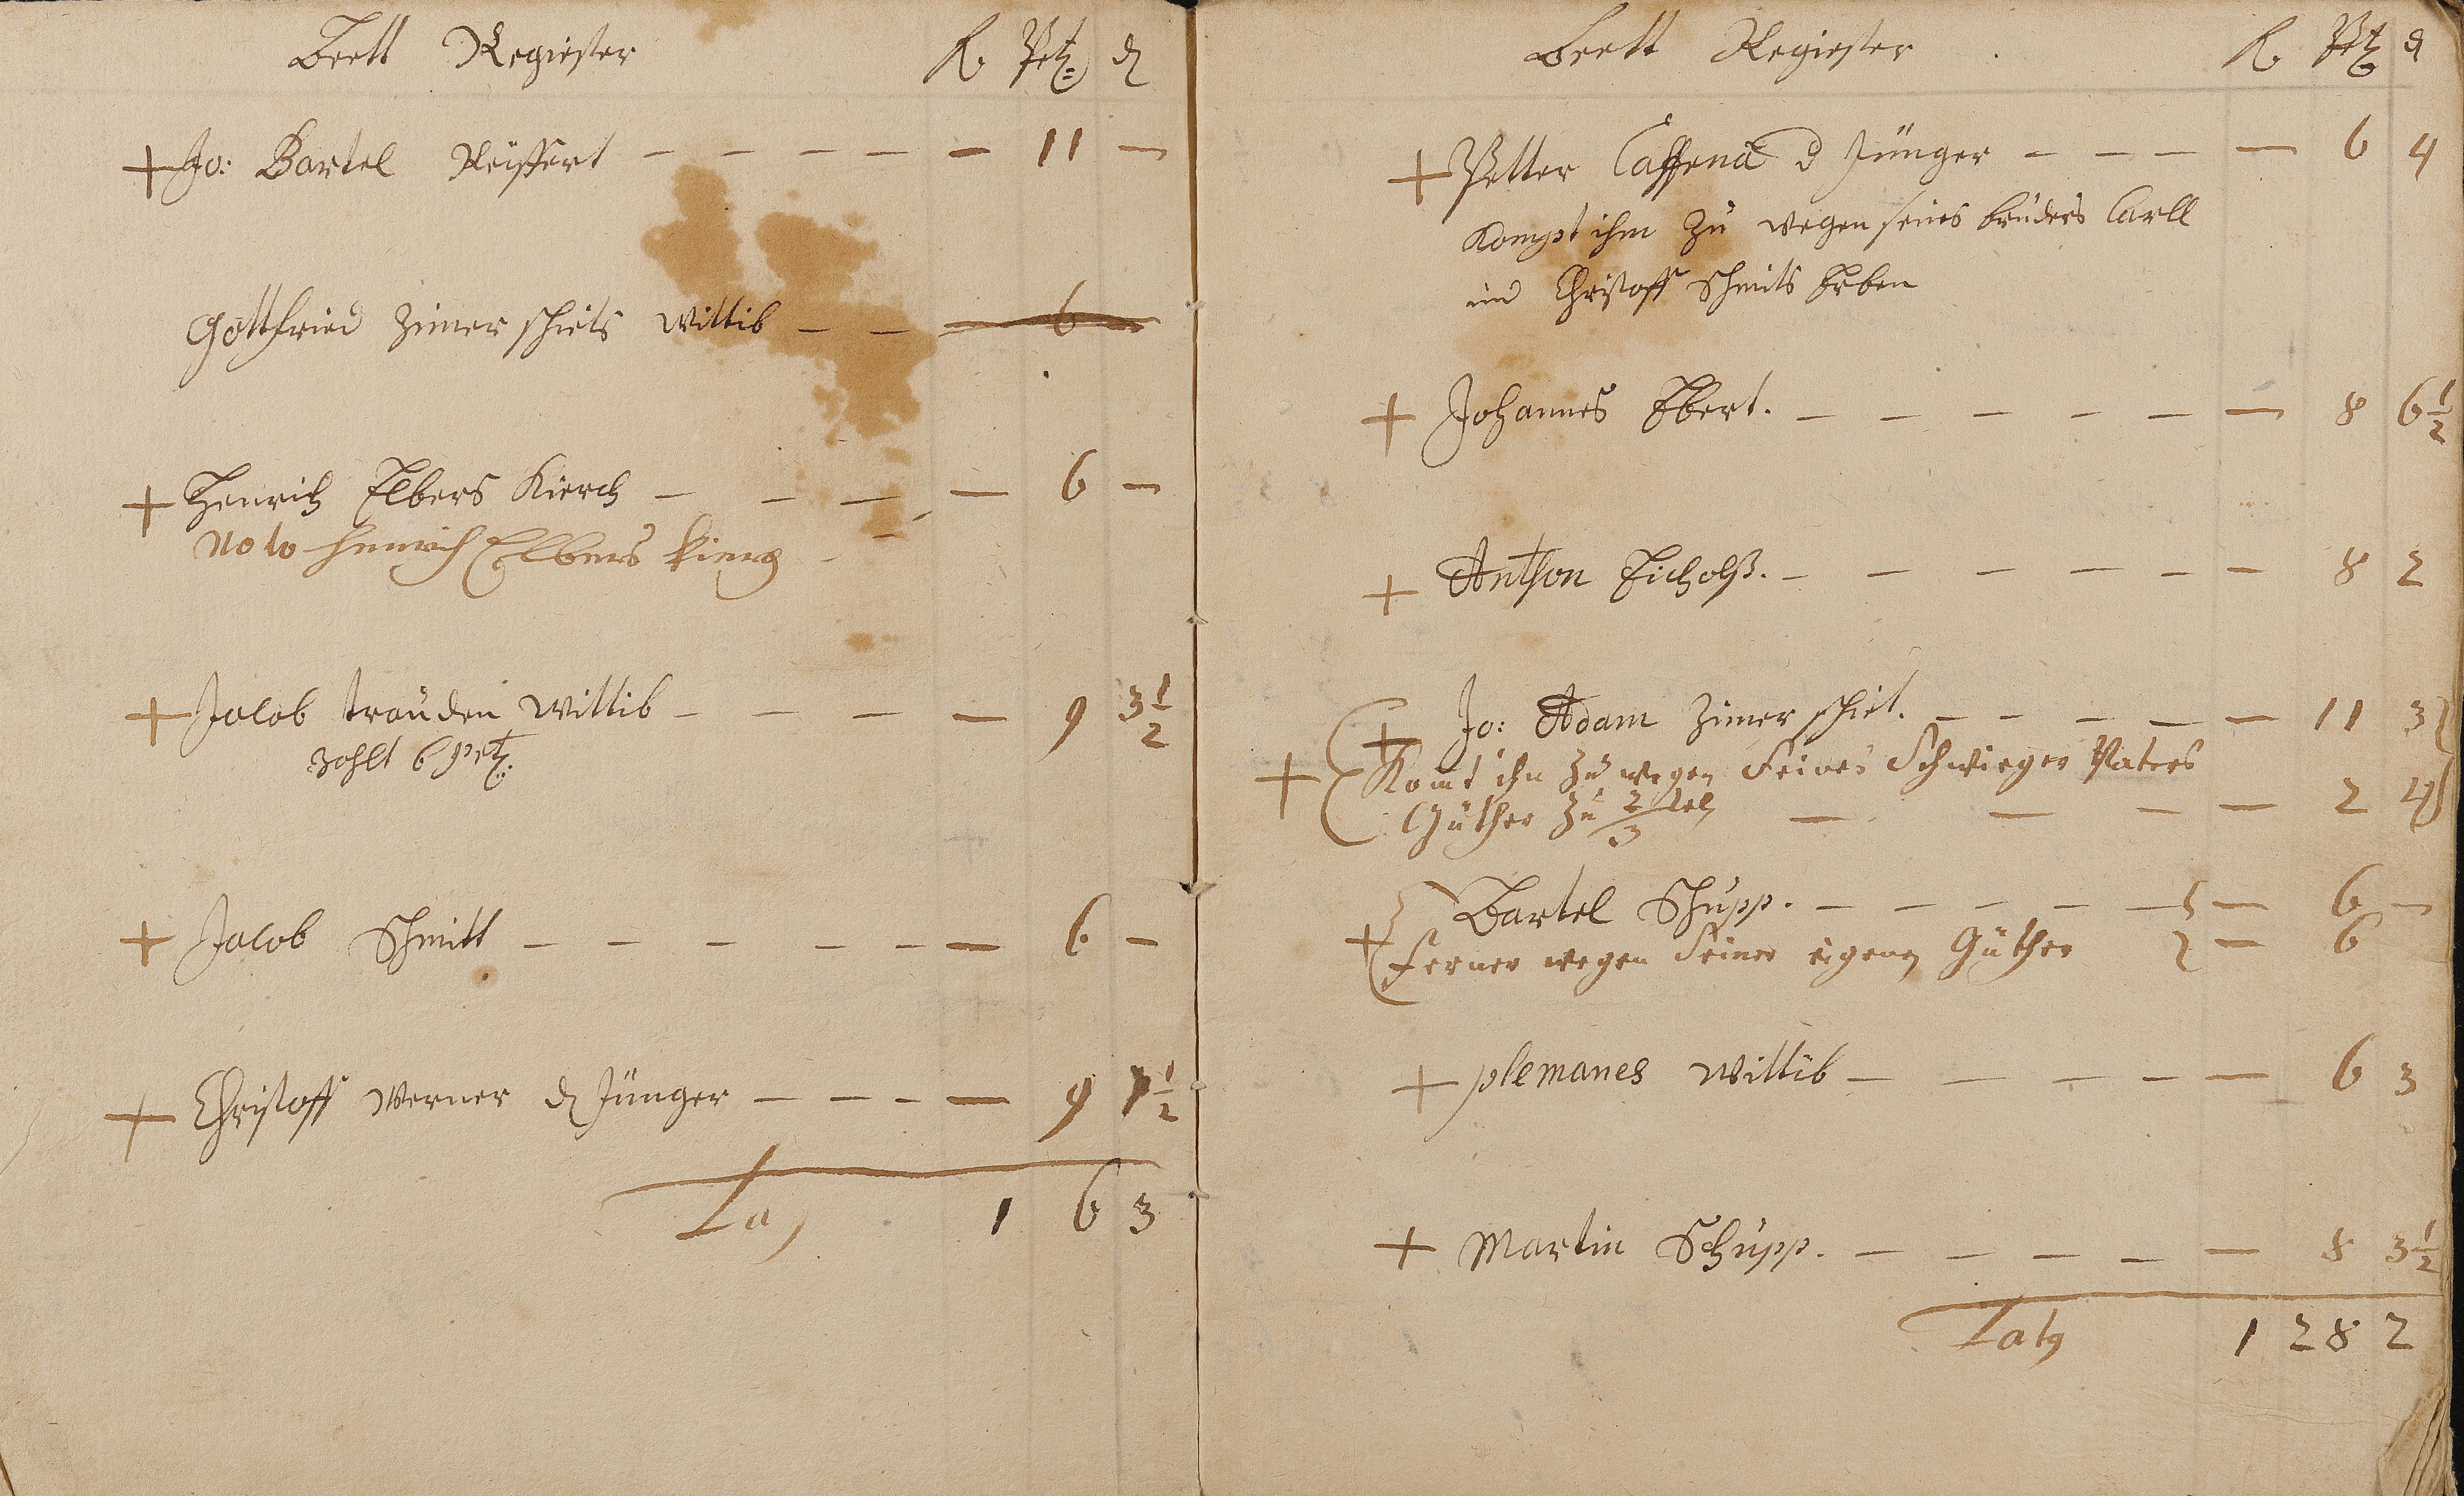 Beett Regiester R Petz d
+ Jo: Bartel Reiffert — — — — — 11 —
Gottfried Zimer schiets Wittib — — 6 —
+ Henrich Elbers Kierch — — — — 6 —
Noto Henrich Elbers Kierch —
+ Jacob trauden Wittib — — — — 9 3 1/2
zahlt 6 petz.
+ Jacob Schmitt — — — — — — 6 —
+ Christoff Werner d Jünger — — — — 9 1/2
Lat 1 6 3
Beett Regiester R Petz d
+ Petter Caffena d Jünger — — — — 6 4
Kompt ihm zu wegen seines bruders Carll
und Christoff Schmits Erben
+ Johannes Ebert. — — — — — — 8 6 1/2
+ Anthon Eicholß. — — — — — — 8 2
+ Jo: Adam Zimer schiet. — — — — — 11 3
+ Komt ihn zu wegen Seines Schwieger Vaters
Güther zu 2/3 tel — — — — 2 4
Bartel Schupp. — — — — — — 6 —
+ Ferner wegen Seiner eigenen Güther — 6
+ plemanes Wittib — — — — — 6 3
+ Martin Schupp. — — — — — 8 3 1/2
Latg 1 28 2